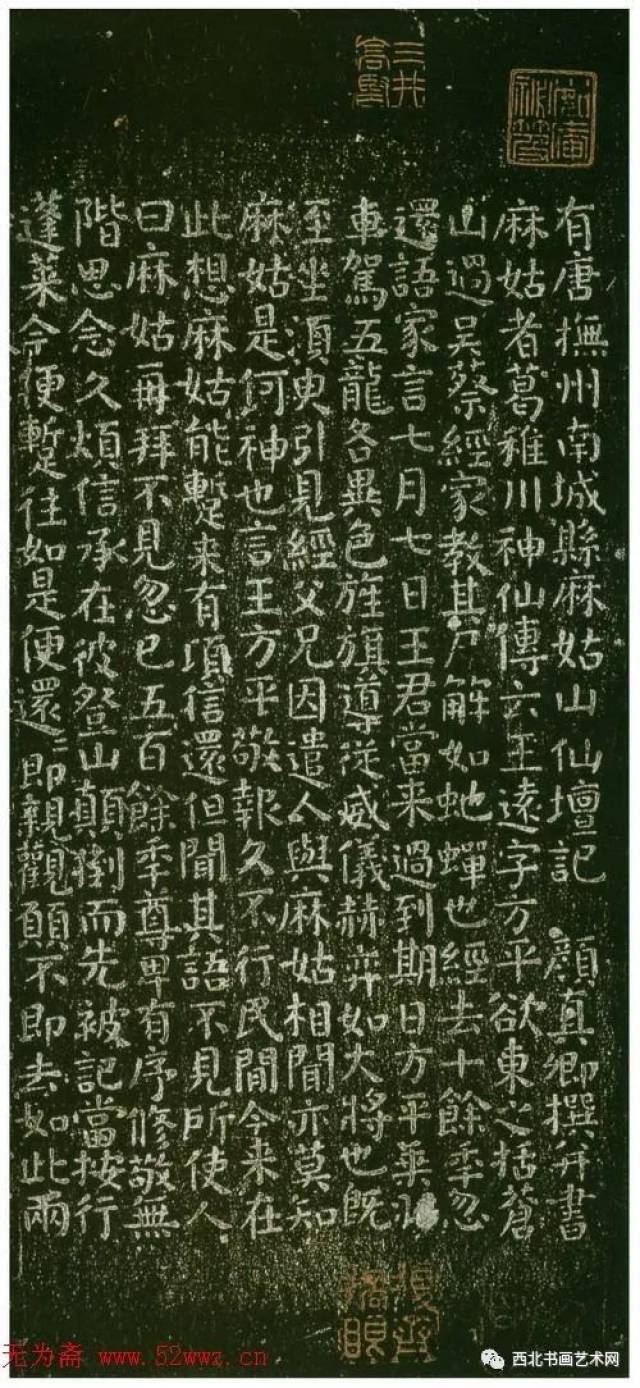 有唐撫州南城縣麻姑山仙壇記 顏真卿撰并書
麻姑者葛稚川神仙傳云王遠字方平欲東之括蒼
山過吳蔡經家教其尸解如虵蟬也經去十餘年忽
還語家言七月七日王君當来過到期日方平乗
車駕五龍各異色旌旗導従威儀赫弈如大將也既
至坐湏臾引見經父兄因遣人與麻姑相聞亦莫知
麻姑是何神也言王方平敬報久不行民間今来在
此想麻姑能蹔来有頃信還但聞其語不見所使人
曰麻姑再拜不見忽已五百餘年尊卑有序修敬無
階思念久煩信承在彼登山顛倒而先被記當按行
蓬萊今便蹔往如是便還還即親觀願不即去如此兩
三井
高堅
无为斋 www.52wwz.cn
西北书画艺术网